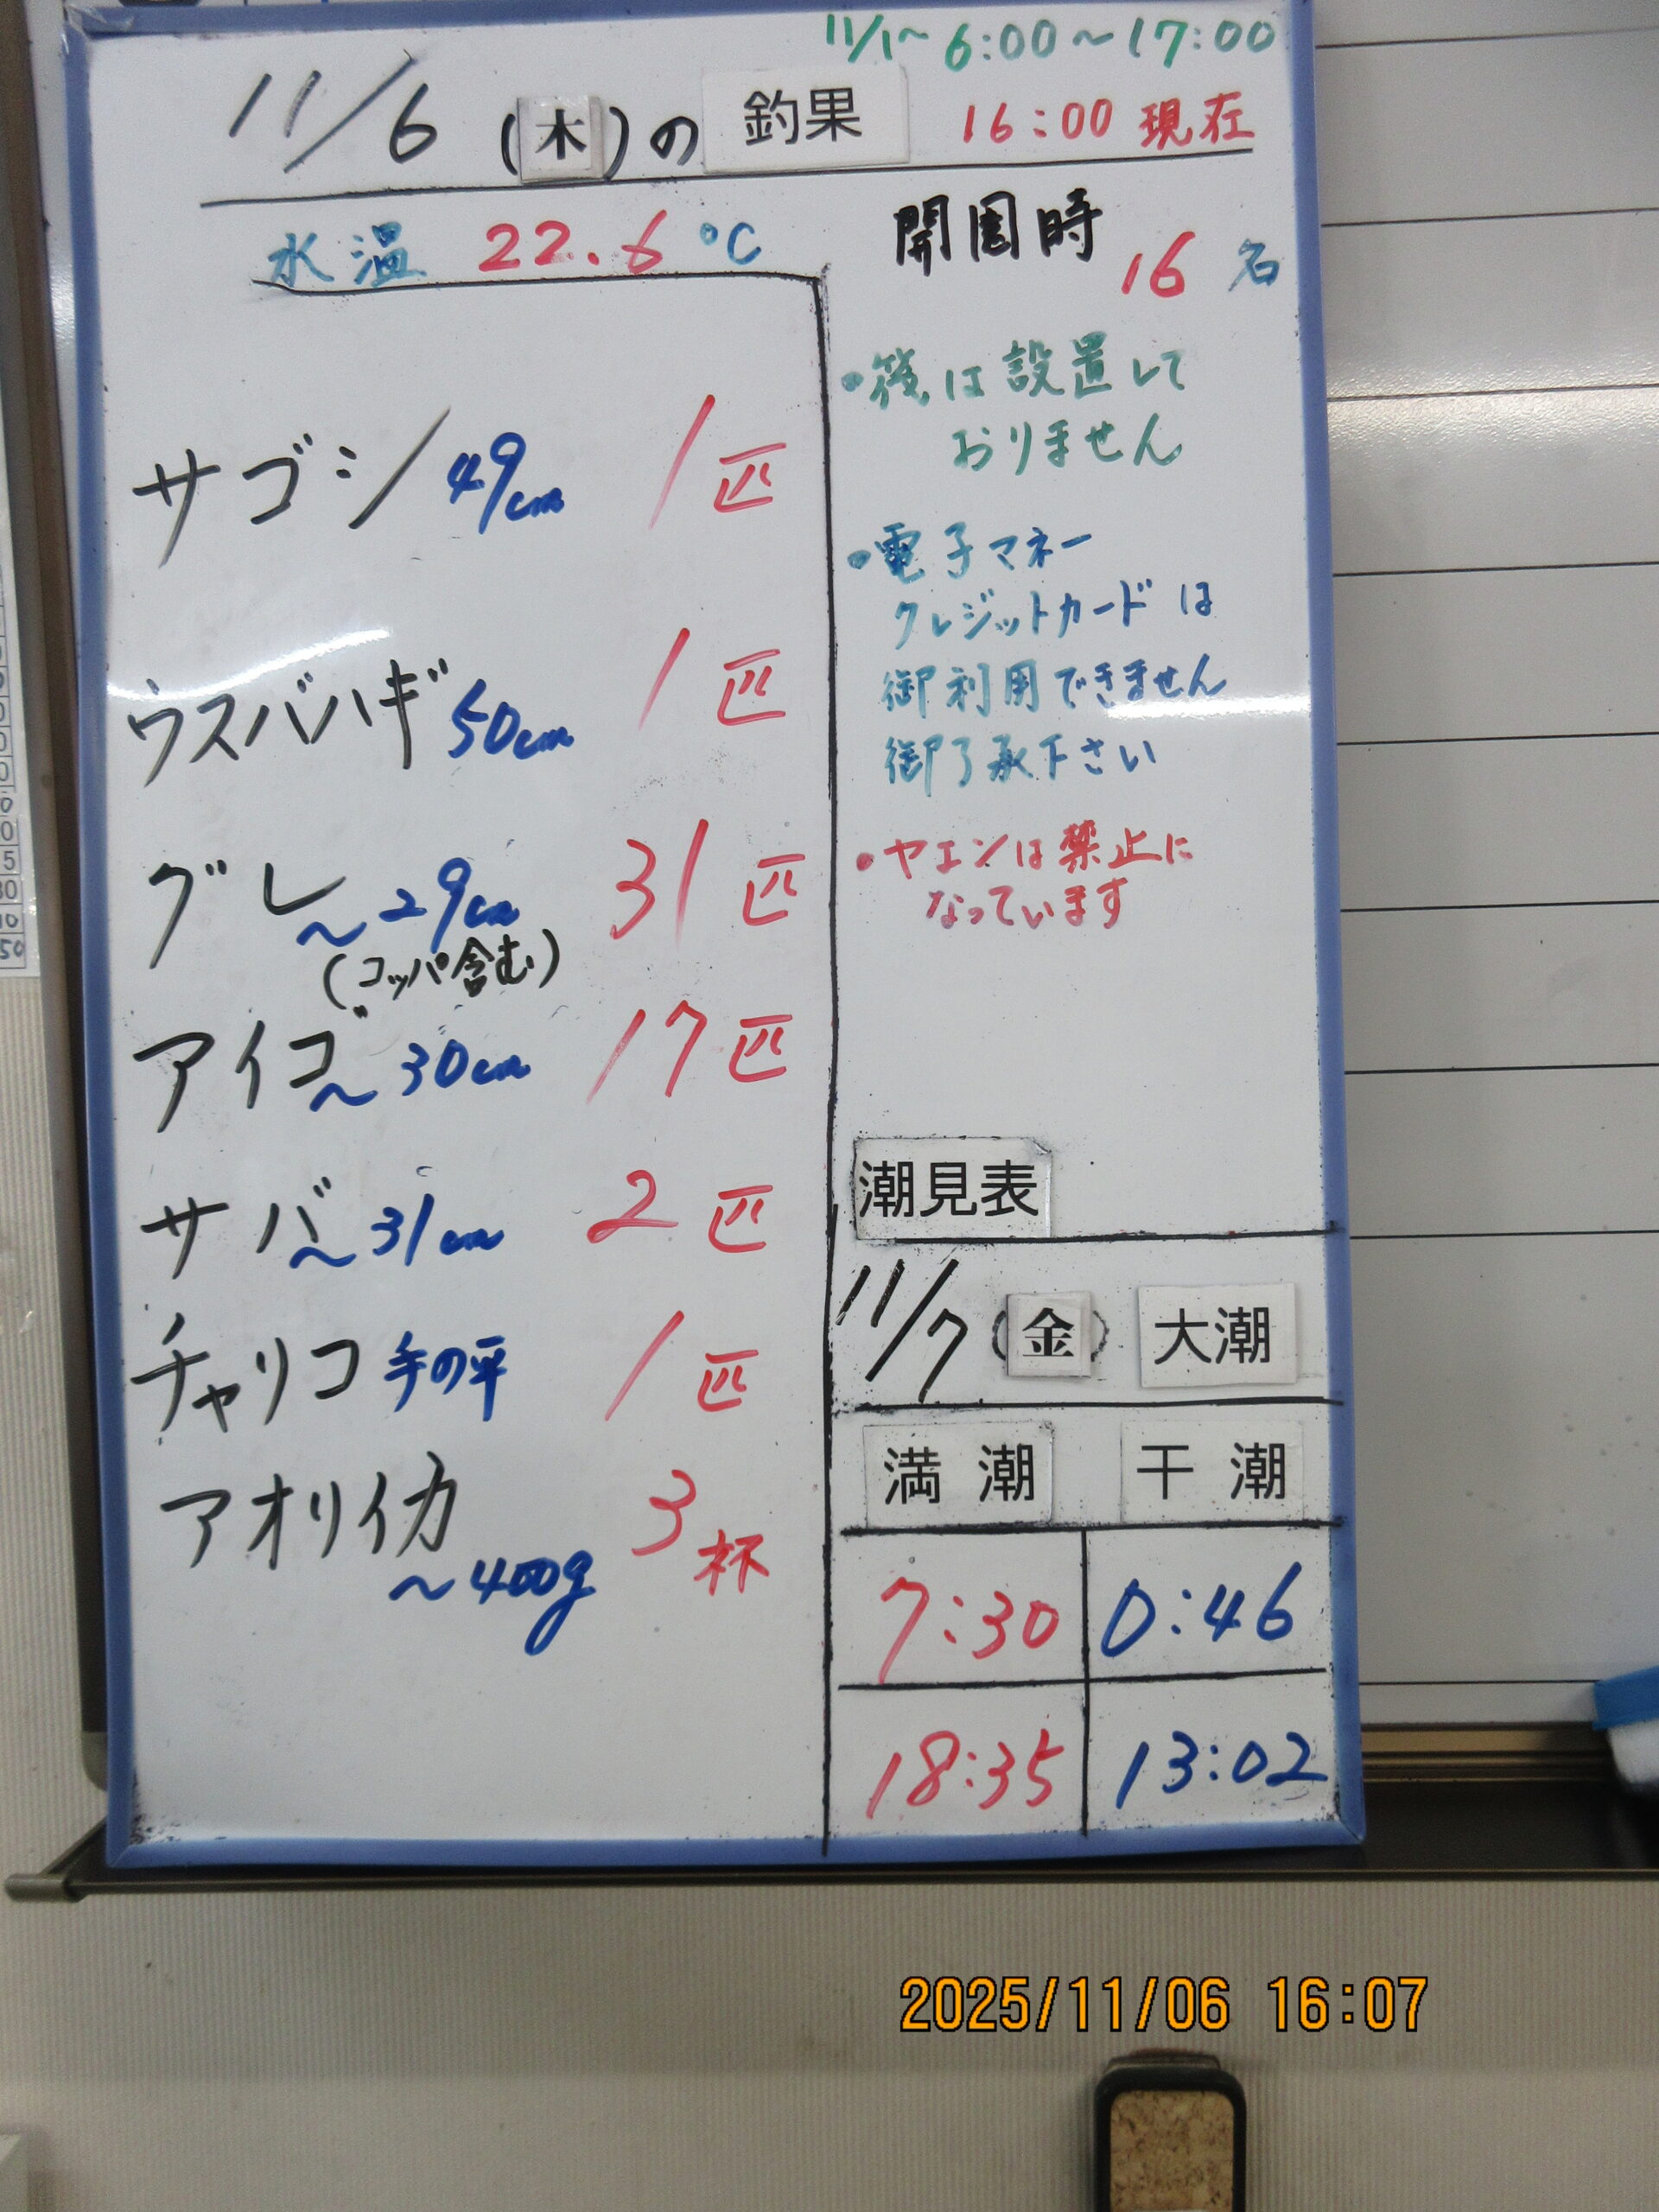 11/1～ 6:00～17:00
11/6 (木)の 釣果 16:00 現在
水温 22.6 ℃
開園時 16 名
サゴシ 49cm 1 匹
ウスバハギ 50cm 1 匹
グレ ～29cm 31 匹
(コッパ含む)
アイゴ ～30cm 17 匹
サバ ～31cm 2 匹
チャリコ 手の平 1 匹
アオリイカ ～400g 3 杯
・筏は設置して
おりません
・電子マネー
クレジットカードは
御利用できません
御了承下さい
・ヤエンは禁止に
なっています
潮見表
11/7 (金) 大潮
満潮 干潮
7:30 0:46
18:35 13:02
2025/11/06 16:07